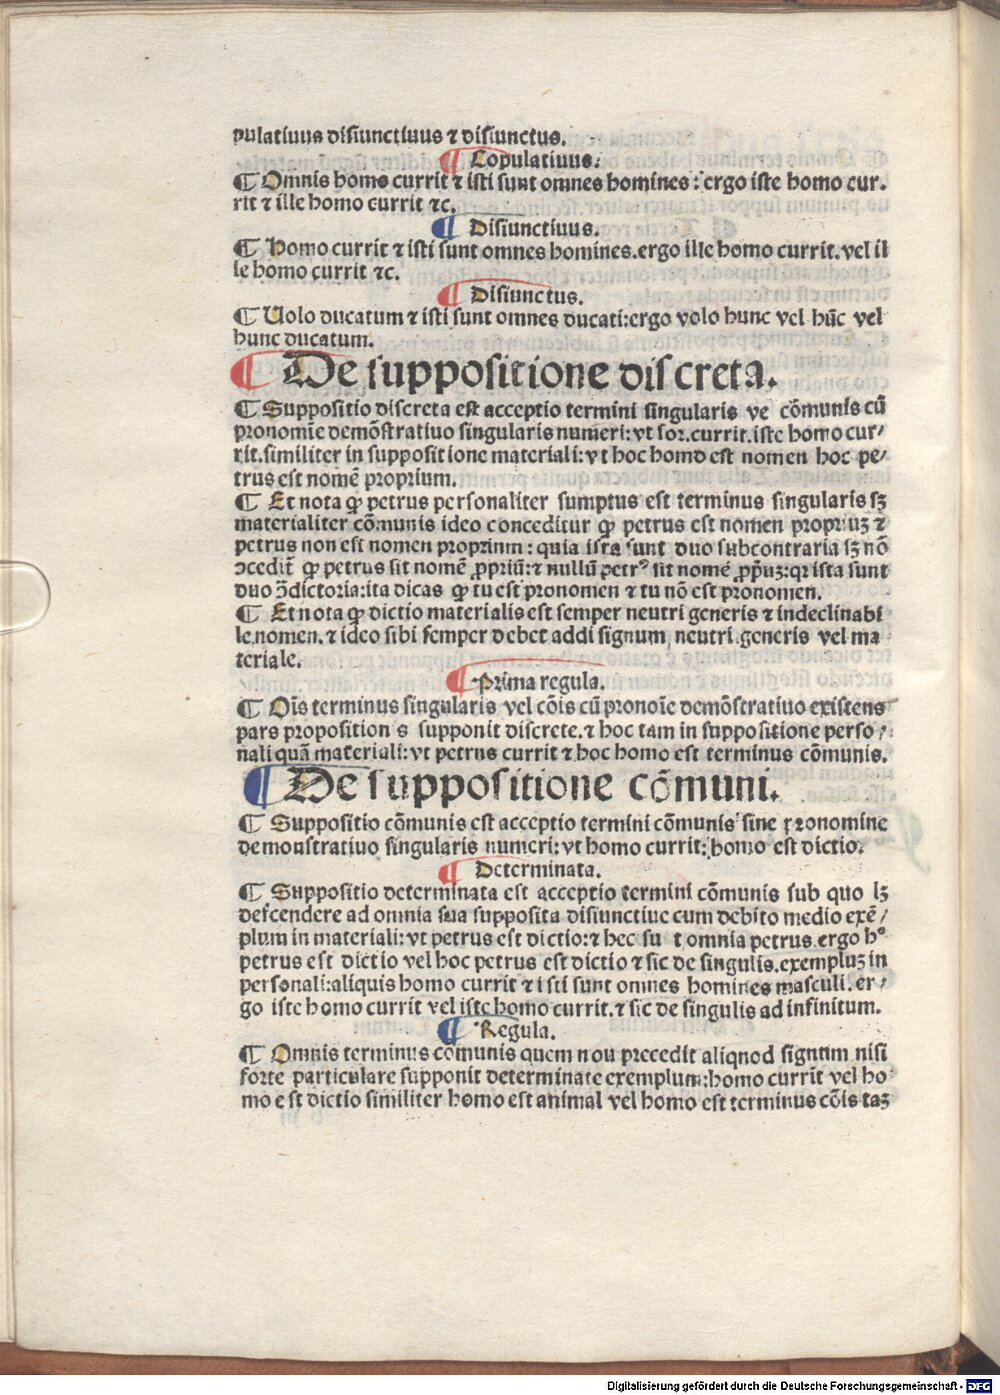 pulatiuus disiunctiuus ⁊ disiunctus.
¶ Copulatiuus.
¶ Omnis homo currit ⁊ isti sunt omnes homines: ergo iste homo cur.
rit ⁊ ille homo currit ⁊c.
¶ Disiunctiuus.
¶ Homo currit ⁊ isti sunt omnes homines.ergo ille homo currit.vel il
le homo currit ⁊c.
¶ Disiunctus.
¶ Uolo ducatum ⁊ isti sunt omnes ducati:ergo volo hunc vel hūc vel
hunc ducatum.
¶ De suppositione discreta.
¶ Suppositio discreta est acceptio termini singularis ve cōmunis cū
pronomīe demōstratiuo singularis numeri:vt sor.currit.iste homo cur/
rit.similiter in suppositione materiali:vt hoc homo est nomen hoc pe/
trus est nomē proprium.
¶ Et nota ꝙ petrus personaliter sumptus est terminus singularis sꝫ
materialiter cōmunis ideo conceditur ꝙ petrus est nomen propriuꝫ ⁊
petrus non est nomen proprinm: quia ista sunt duo subcontraria sꝫ nō
ↄcedit̄ ꝙ petrus sit nomē ꝓpriū:⁊ nullū petrꝰ sit nomē ꝓp̄uꝫ:qr ista sunt
duo ↄ̄dictoria:ita dicas ꝙ tu est pronomen ⁊ tu nō est pronomen.
¶ Et nota ꝙ dictio materialis est semper neutri generis ⁊ indeclinabi
le.nomen.⁊ ideo sibi semper debet addi signum neutri.generis vel ma
teriale.
¶ Prima regula.
¶ Oīs terminus singularis vel cōis cū pronoīe demōstratiuo existens
pars proposition s supponit discrete.⁊ hoc tam in suppositione perso/
nali quā materiali:vt petrus currit ⁊ hoc homo est terminus cōmunis.
¶ De suppositione cōmuni.
¶ Suppositio cōmunis est acceptio termini cōmunis sine pronomine
demoustratiuo singularis numeri:vt homo currit:homo est dictio.
¶ Determinata.
¶ Suppositio determinata est acceptio termini cōmunis sub quo lꝫ
descendere ad omnia sua supposita disiunctiue cum debito medio exē/
plum in materiali:vt petrus est dictio:⁊ hec su t omnia petrus.ergo hᵒ
petrus est dictio vel hoc petrus est dictio ⁊ sic de singulis.exempluꝫ in
personali:aliquis homo currit ⁊ isti sunt omnes homines masculi.er/
go iste homo currit vel iste homo currit.⁊ sic de singulis ad infinitum.
¶ Regula.
¶ Omnis terminus cōmunis quem nou precedit aliqnod signnm nisi
forte particulare supponit determinate exemplum:homo currit vel ho
mo est dictio similiter homo est animal vel homo est terminus cōis taꝫ
Digitalisierung gefördert durch die Deutsche Forschungsgemeinschaft - DFG